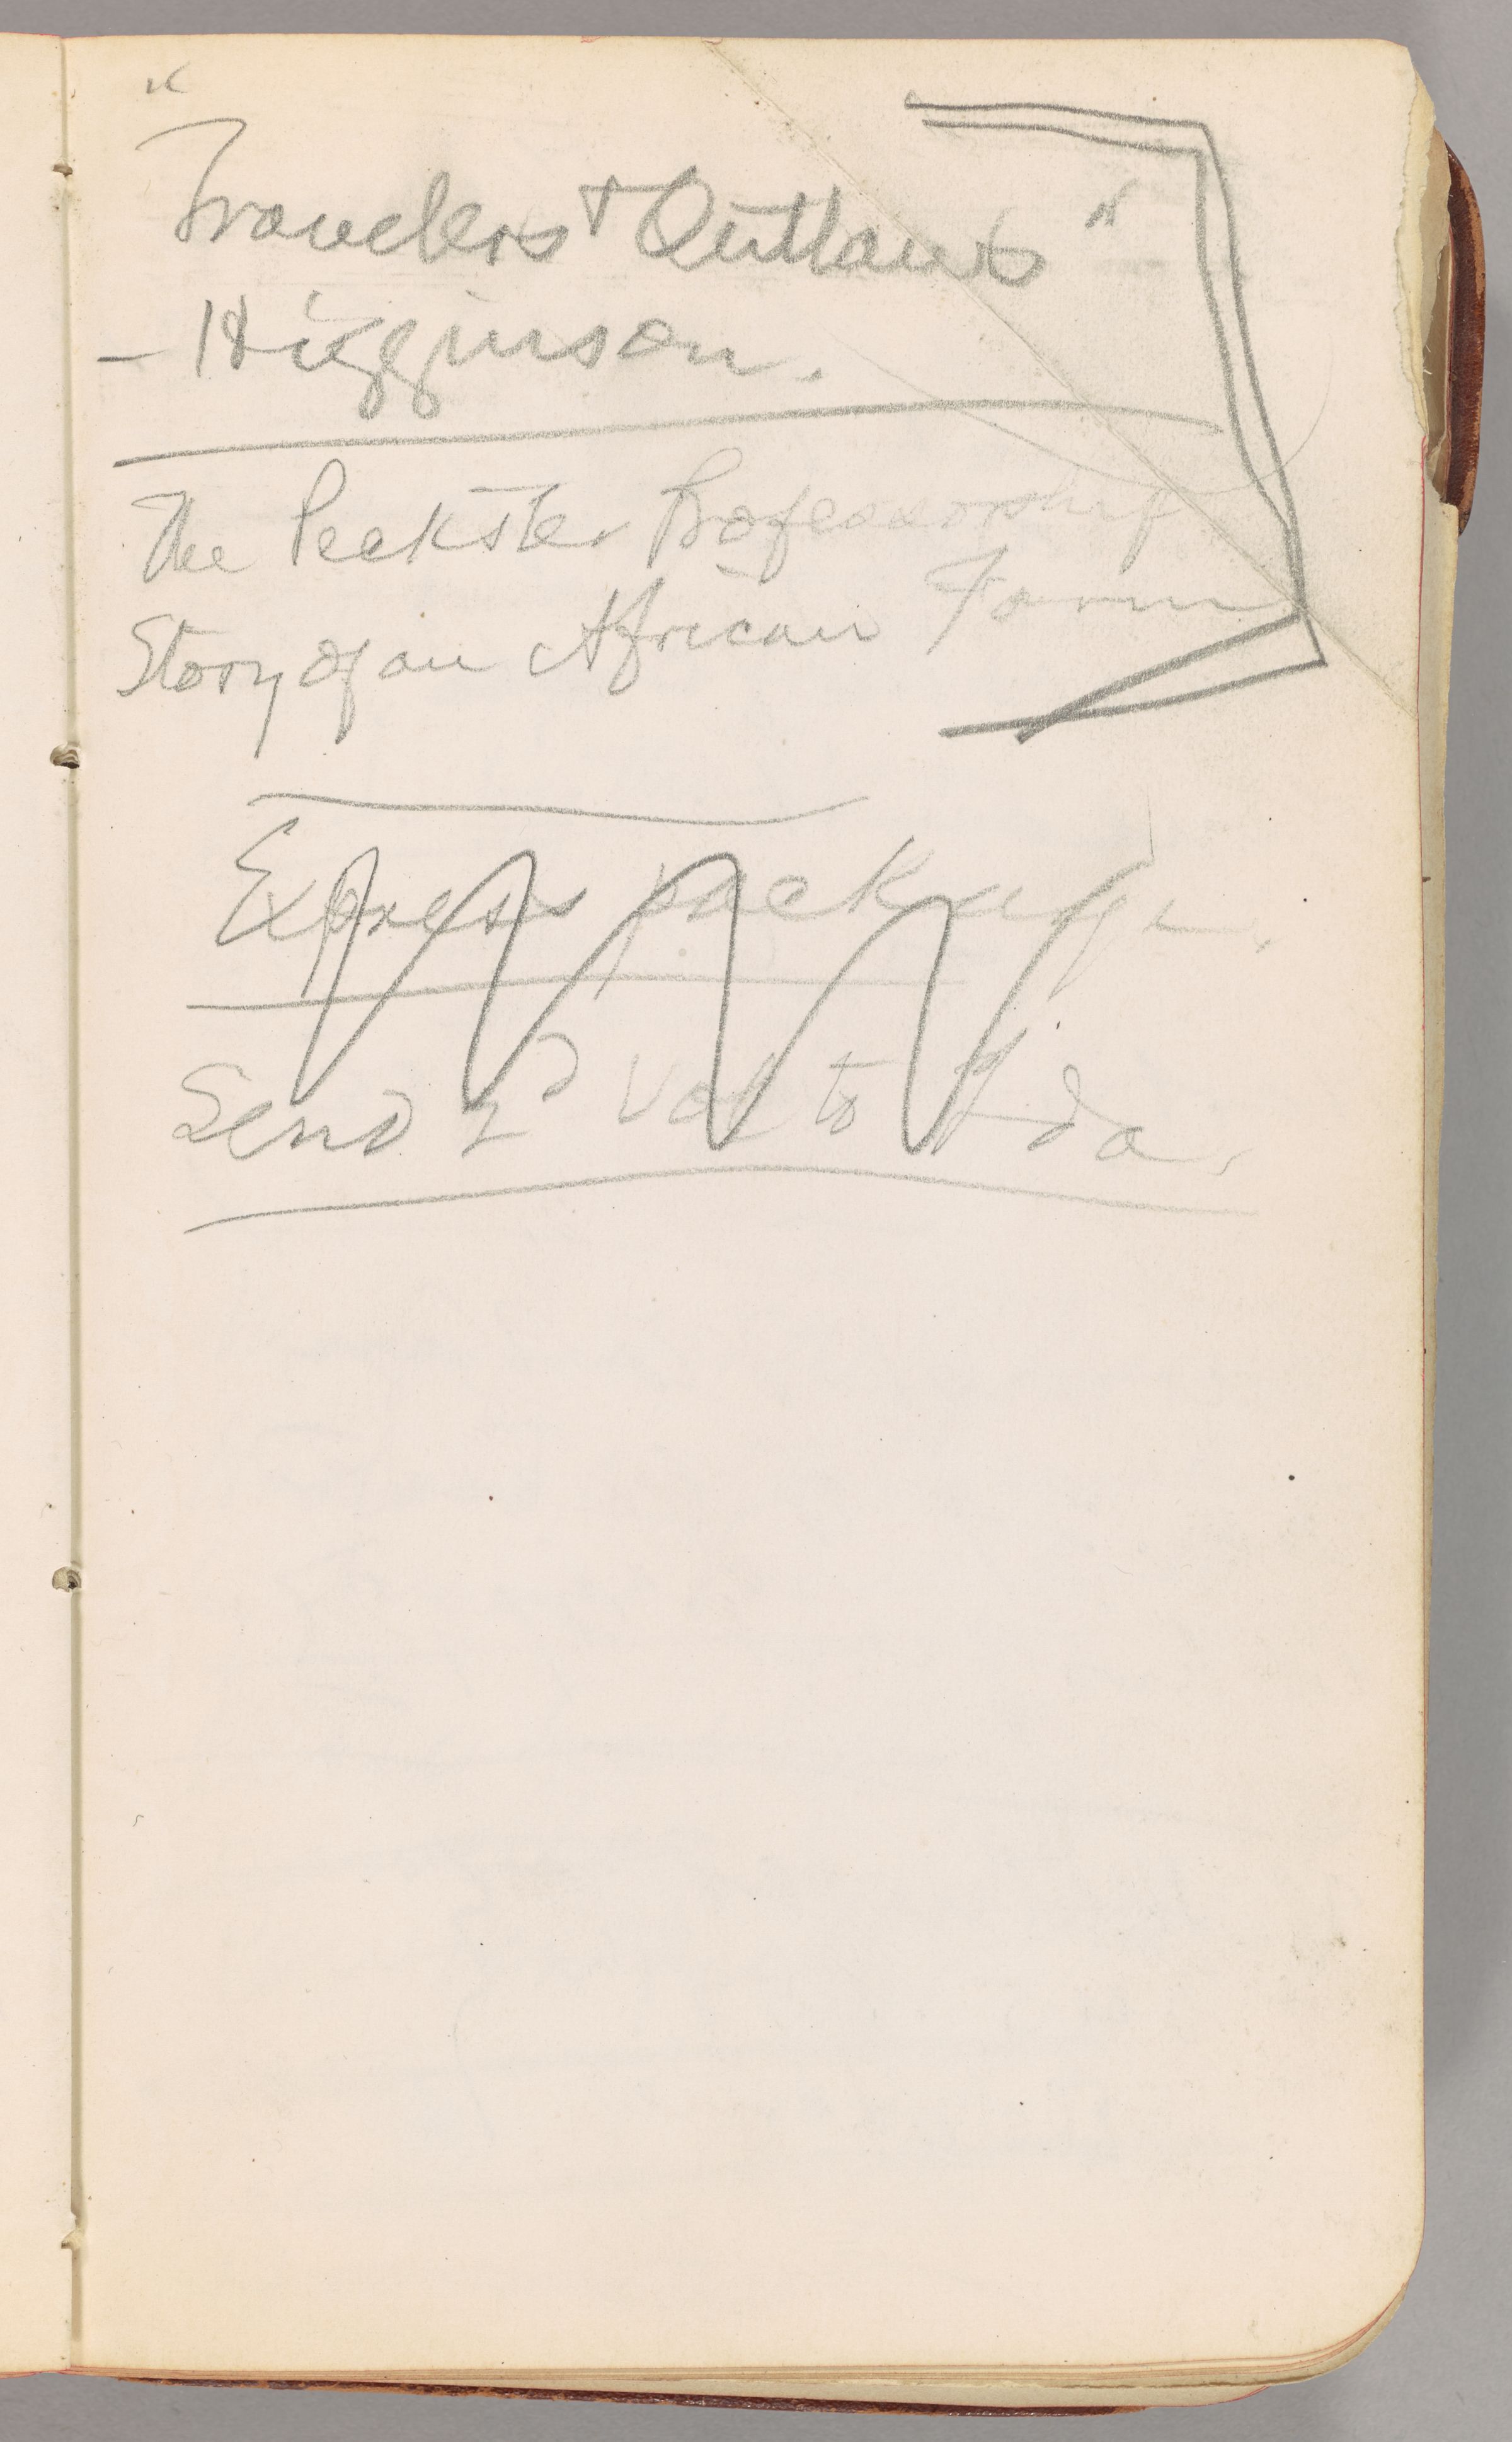 "Travelers + Outlaws"
– Higginson.
The Peckster Professorship
Story of an African Farm
Express package.
Send 2ᵈ Vol to Ida.